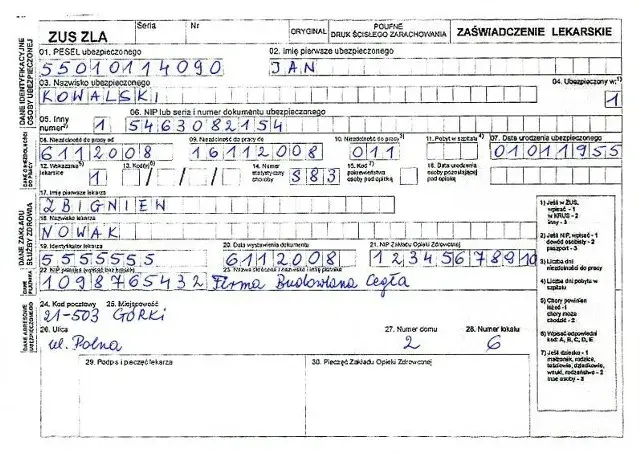 ZUS ZLA
Seria
Nr
ORYGINAŁ
POUFNE
DRUK ŚCISŁEGO ZARACHOWANIA
ZAŚWIADCZENIE LEKARSKIE
DANE IDENTYFIKACYJNE OSOBY UBEZPIECZONEJ
01. PESEL ubezpieczonego
02. Imię pierwsze ubezpieczonego
55010114090
JAN
03. Nazwisko ubezpieczonego
04. Ubezpieczony w:1)
KOWALSKI
1
05. Inny numer2)
06. NIP lub seria i numer dokumentu ubezpieczonego
1
5463082154
08. Niezdolność do pracy od
09. Niezdolność do pracy do
10. Niezdolność do pracy3)
11. Pobyt w szpitalu4)
07. Data urodzenia ubezpieczonego
6112008
16112008
011
01011955
12. Wskazania lekarskie
13. Kod(y)
14. Numer statystyczny choroby
15. Kod7) pokrewieństwa osoby pod opieką
16. Data urodzenia osoby pozostającej pod opieką
1
/ / /
S83
DANE ZAKŁADU SŁUŻBY ZDROWIA
17. Imię pierwsze lekarza
ZBIGNIEW
18. Nazwisko lekarza
NOWAK
19. Identyfikator lekarza
20. Data wystawienia dokumentu
21. NIP Zakładu Opieki Zdrowotnej
5555555
6112008
12345678910
1098765432
Firma Budowlana Cegła
24. Kod pocztowy
25. Miejscowość
21-503 GÓRKI
26. Ulica
27. Numer domu
28. Numer lokalu
ul. Polna
2
6
29. Podpis i pieczęć lekarza
30. Pieczęć Zakładu Opieki Zdrowotnej
1) Jeśli w ZUS, wpisać - 1
w KRUS - 2
inny - 3
2) Jeśli NIP, wpisać - 1
dowód osobisty - 2
paszport - 3
3) Liczba dni niezdolności do pracy
4) Liczba dni pobytu w szpitalu
5) Chory powinien leżeć - 1
chory może chodzić - 2
6) Wpisać odpowiedni kod: A, B, C, D, E
7) Jeśli dziecko - 1
małżonek, rodzice, teściowie, dziadkowie, wnuki, rodzeństwo - 2
inne osoby - 3